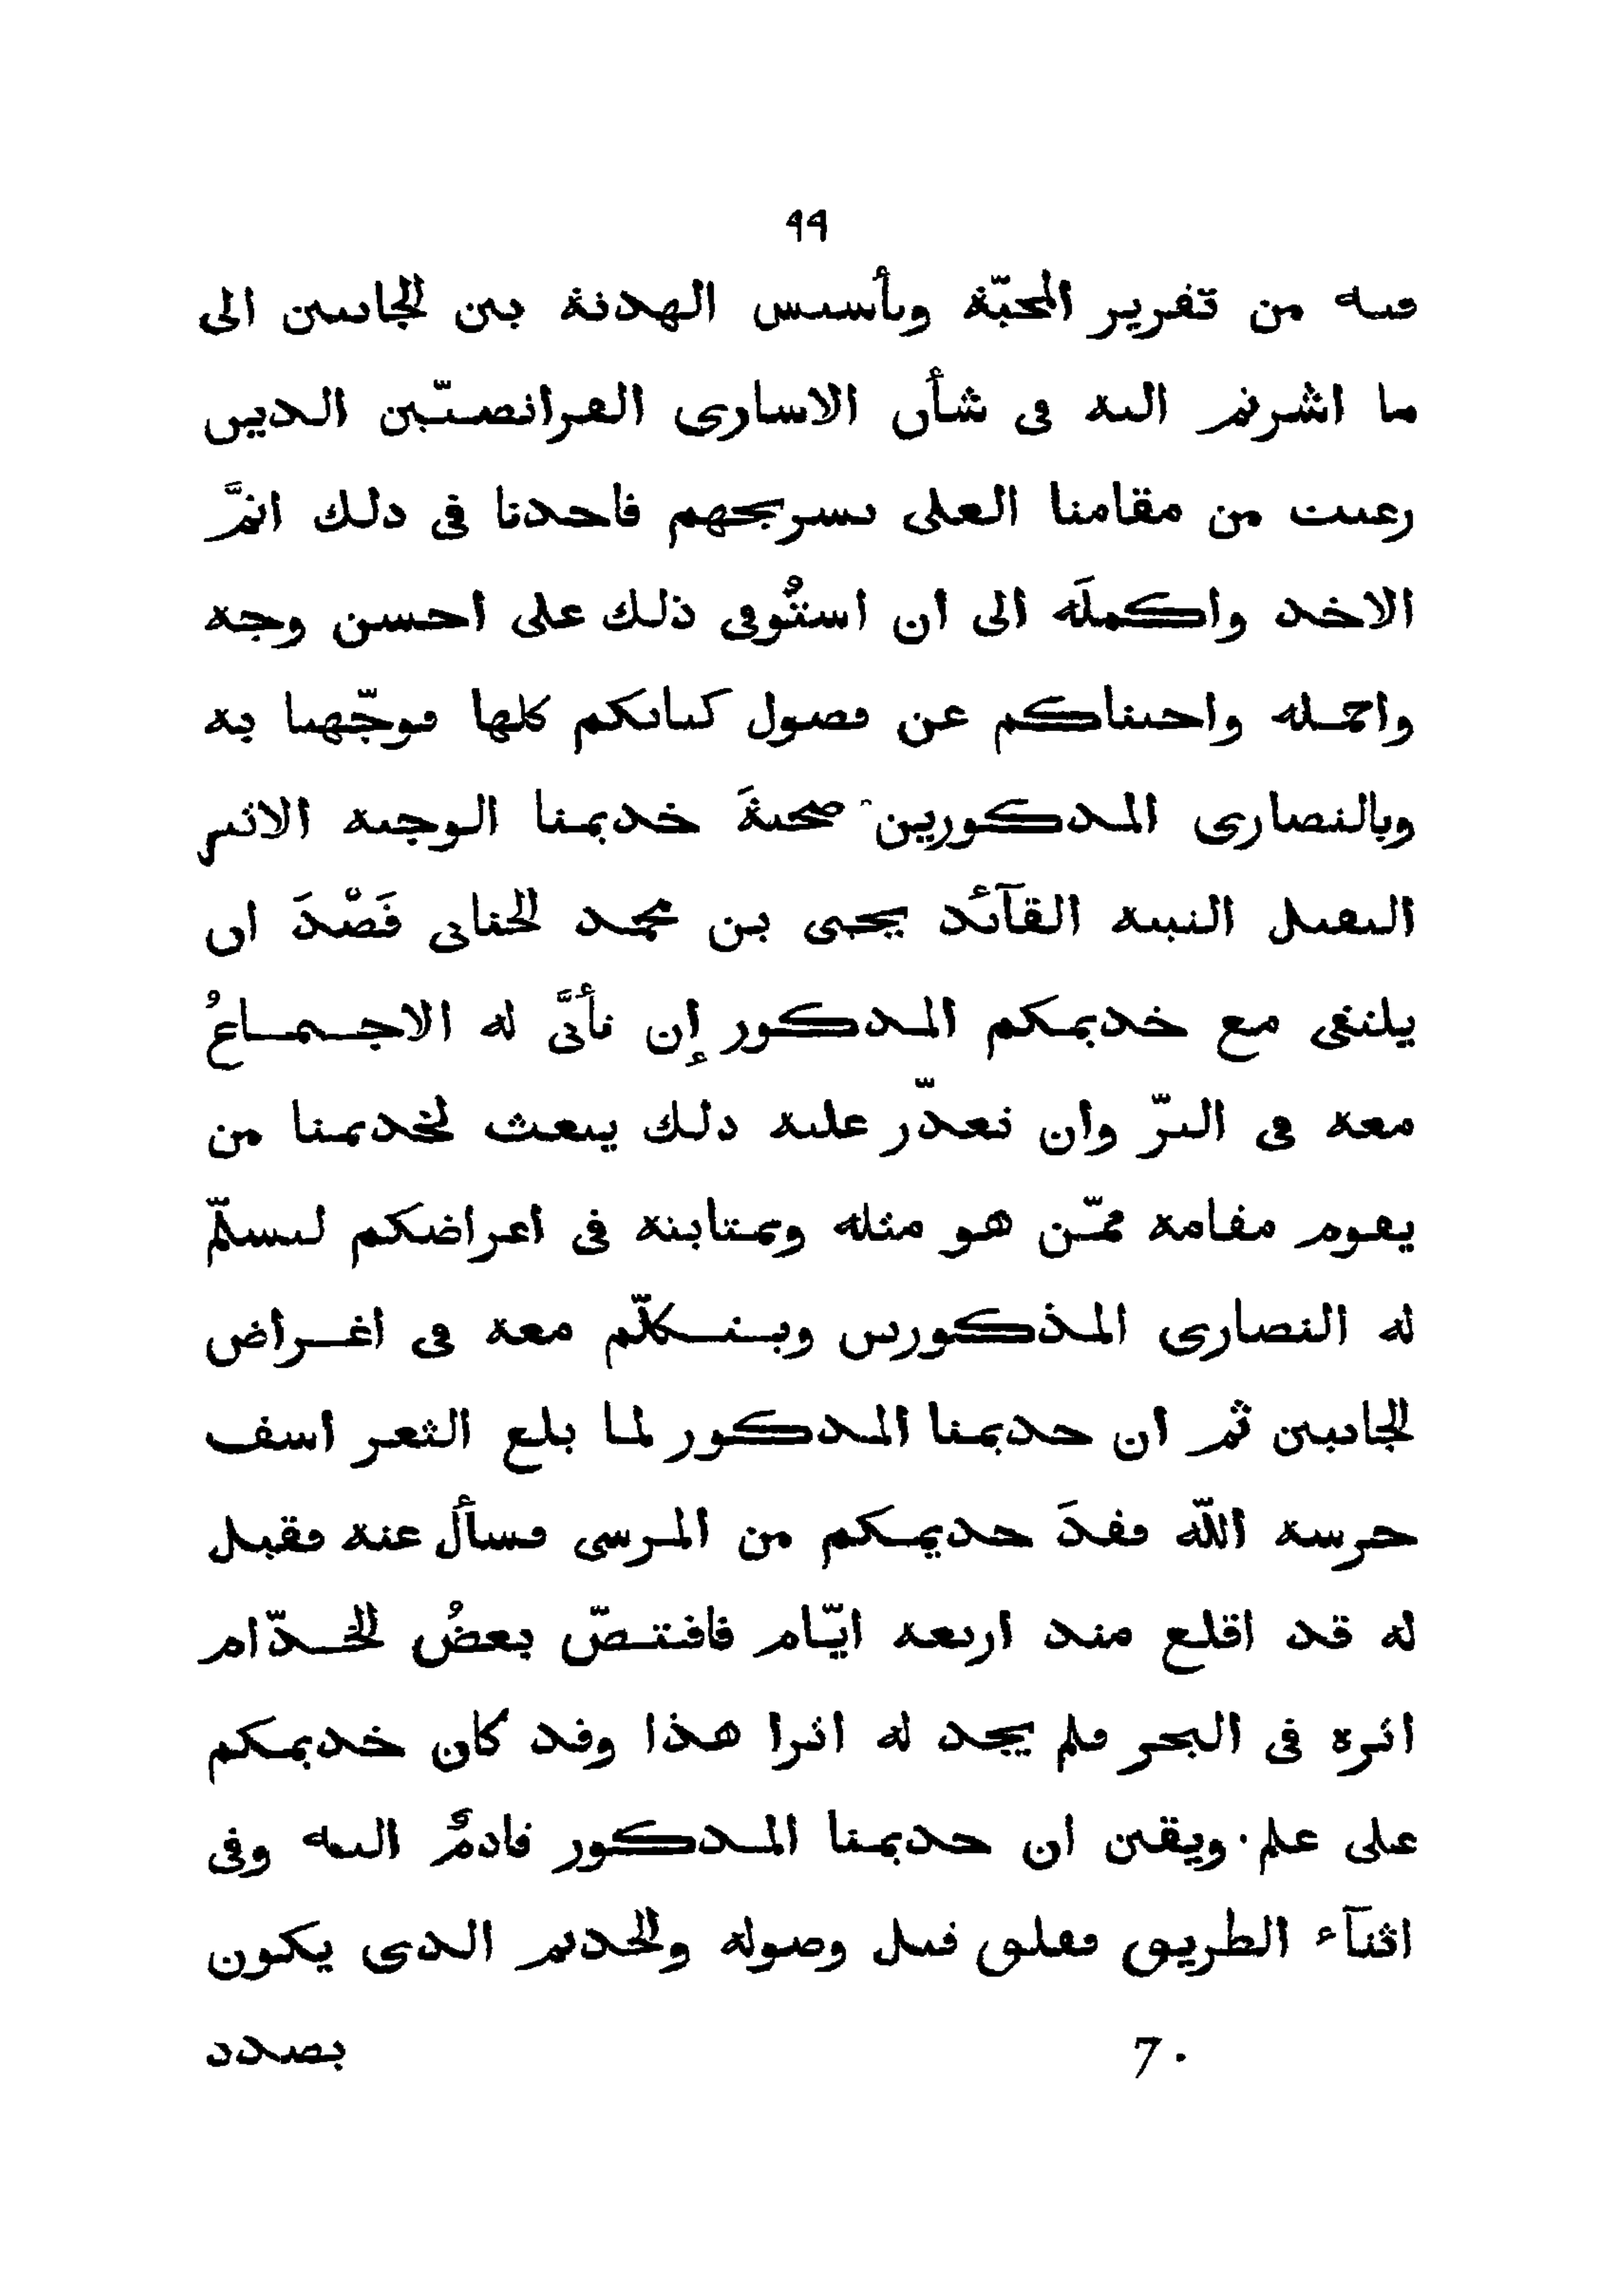 ٩٩
فيه من تقرير المحبّة وتأسيس الهدنة بين الجانبين الى
ما اشرتم اليه فى شأن الاسارى الفرانصيّين الذين
رغبت من مقامنا العلى تسريحهم فاخذنا فى ذلك اتمَّ
الاخذ واكملَه الى ان استُوفى ذلك على احسن وجه
واجمله واجبناكم عن فصول كتابكم كلها فوجّهنا به
وبالنصارى المذكورين صحبةَ خديمنا الوجيه الاثير
النبيه القآئد يحيى بن محمد الجناتى قَصْدَ ان
يلتقى مع خديمكم المذكور إن تأتَّى له الاجتماعُ
معه فى البرّ وان تعذّر عليه ذلك يبعث لخديمنا من
يقوم مقامه ممّن هو مثله وبمثابته فى اغراضكم ليسلّم
له النصارى المذكورين ويتكلّم معه فى اغراض
الجانبين ثم ان خديمنا المذكور لما بلغ الثغر اسفى
حرسه اللّه فقدَ خديمكم من المرسى فسأل عنه فقيل
له قد اقلع منذ اربعه ايّام فاقتصّ بعضُ الخدّام
اثره فى البحر فلم يجد له اثرا هذا وقد كان خديمكم
على علم ويقين ان خديمنا المذكور قادمٌ اليه وفى
اثنآء الطريق فقلق قبل وصوله والخديم الذى يكون
7 · بصدد